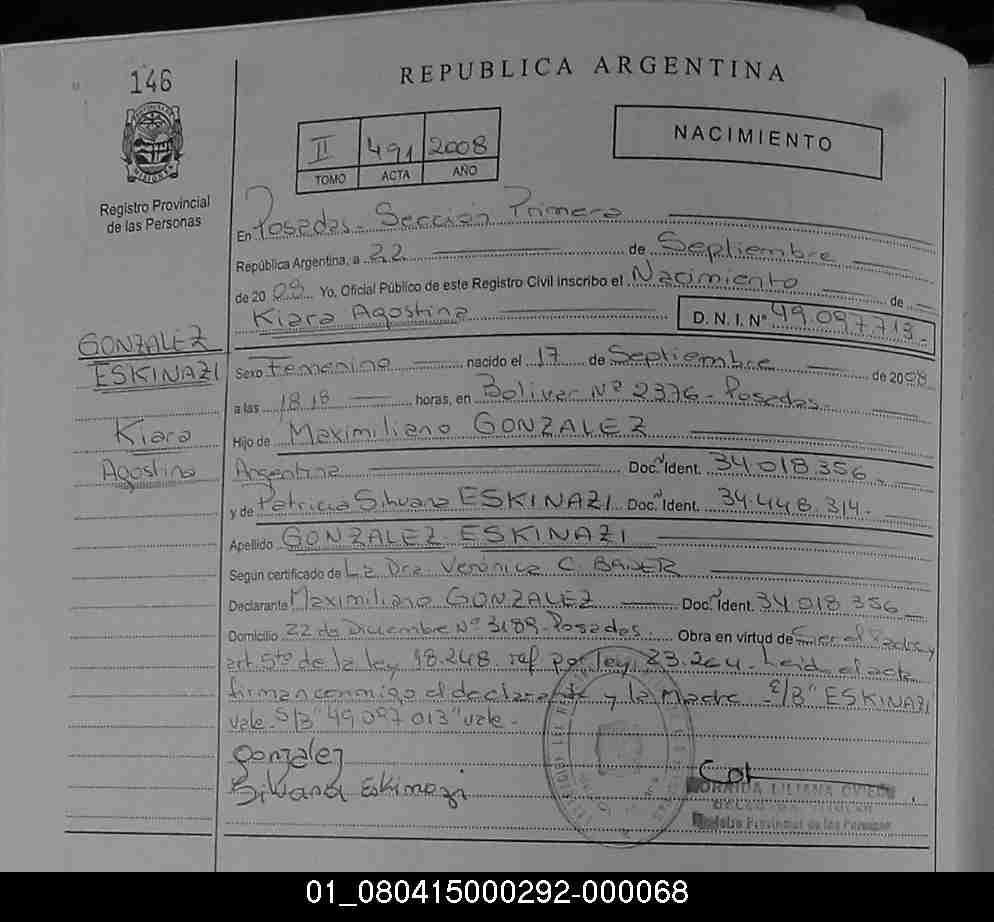 146
REPUBLICA ARGENTINA
II 491 2008
TOMO ACTA AÑO
NACIMIENTO
Registro Provincial
de las Personas
En Posadas - Sección Primera
República Argentina, a 22 de Septiembre
de 2008 Yo, Oficial Público de este Registro Civil inscribo el Nacimiento de
Kiara Agostina D. N. I. Nº
GONZALEZ
ESKINAZI
Kiara
Agostina
Sexo Femenino nacido el 17 de Septiembre de 2008
a las 18.18 horas, en Bolivar Nº 2376 - Posadas
Hijo de Maximiliano GONZALEZ
Argentina Doc. Ident. 34.018.356
y de Patricia Silvana ESKINAZI Doc. Ident. 34.448.314.
Apellido GONZALEZ ESKINAZI
Según certificado de La Dra. Verónica C.
Declarante Maximiliano GONZALEZ Doc. Ident. 34.018.356
Domicilio 22 de Diciembre Nº 3189 - Posadas Obra en virtud de Ser el Padre y
art. 5to de la ley 18.248 ref por ley 23.264. Leída el acta
firman conmigo el declarante y la Madre - E/B "ESKINAZI
vale S/B "49.097.013" vale -
Gonzalez
Silvana Eskinazi
LILIANA
Registro Provincial de las Personas
01_080415000292-000068